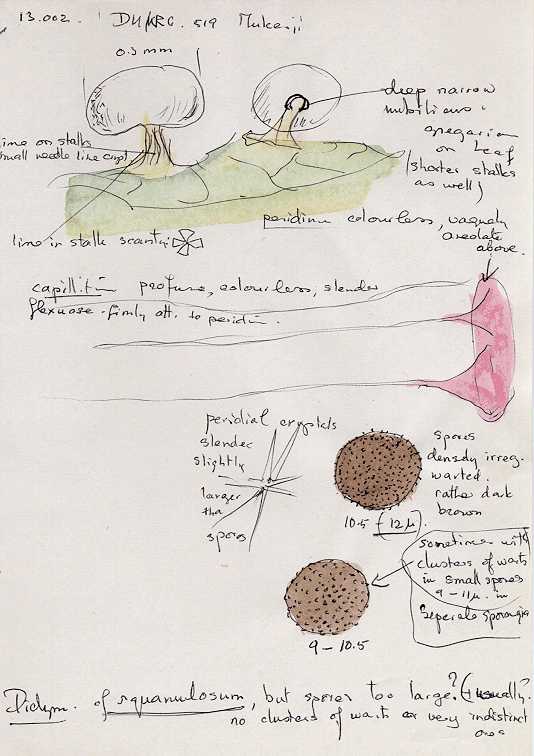 13.002. DU/RC. 519 Mukerji
0.3 mm
deep narrow
umbilicus.
lime on stalk
small needle like cryst
sporangium
on leaf
(shorter stalks
as well)
peridium colourless, vaguely
areolate
above.
lime in stalk scanty.
capillitium profuse, colourless, slender
flexuose - firmly att. to peridium.
peridial crystals
slender
slightly
larger
tha
spores
spores
densely irreg.
warted.
rather dark
brown
10.5 - (12μ).
sometimes with
clusters of warts
in small spores
9 - 11μ. in
seperate sporangia
9 - 10.5
Didym. cf squamulosum, but spores too large? (usually?
no clusters of warts or very indistinct
ones